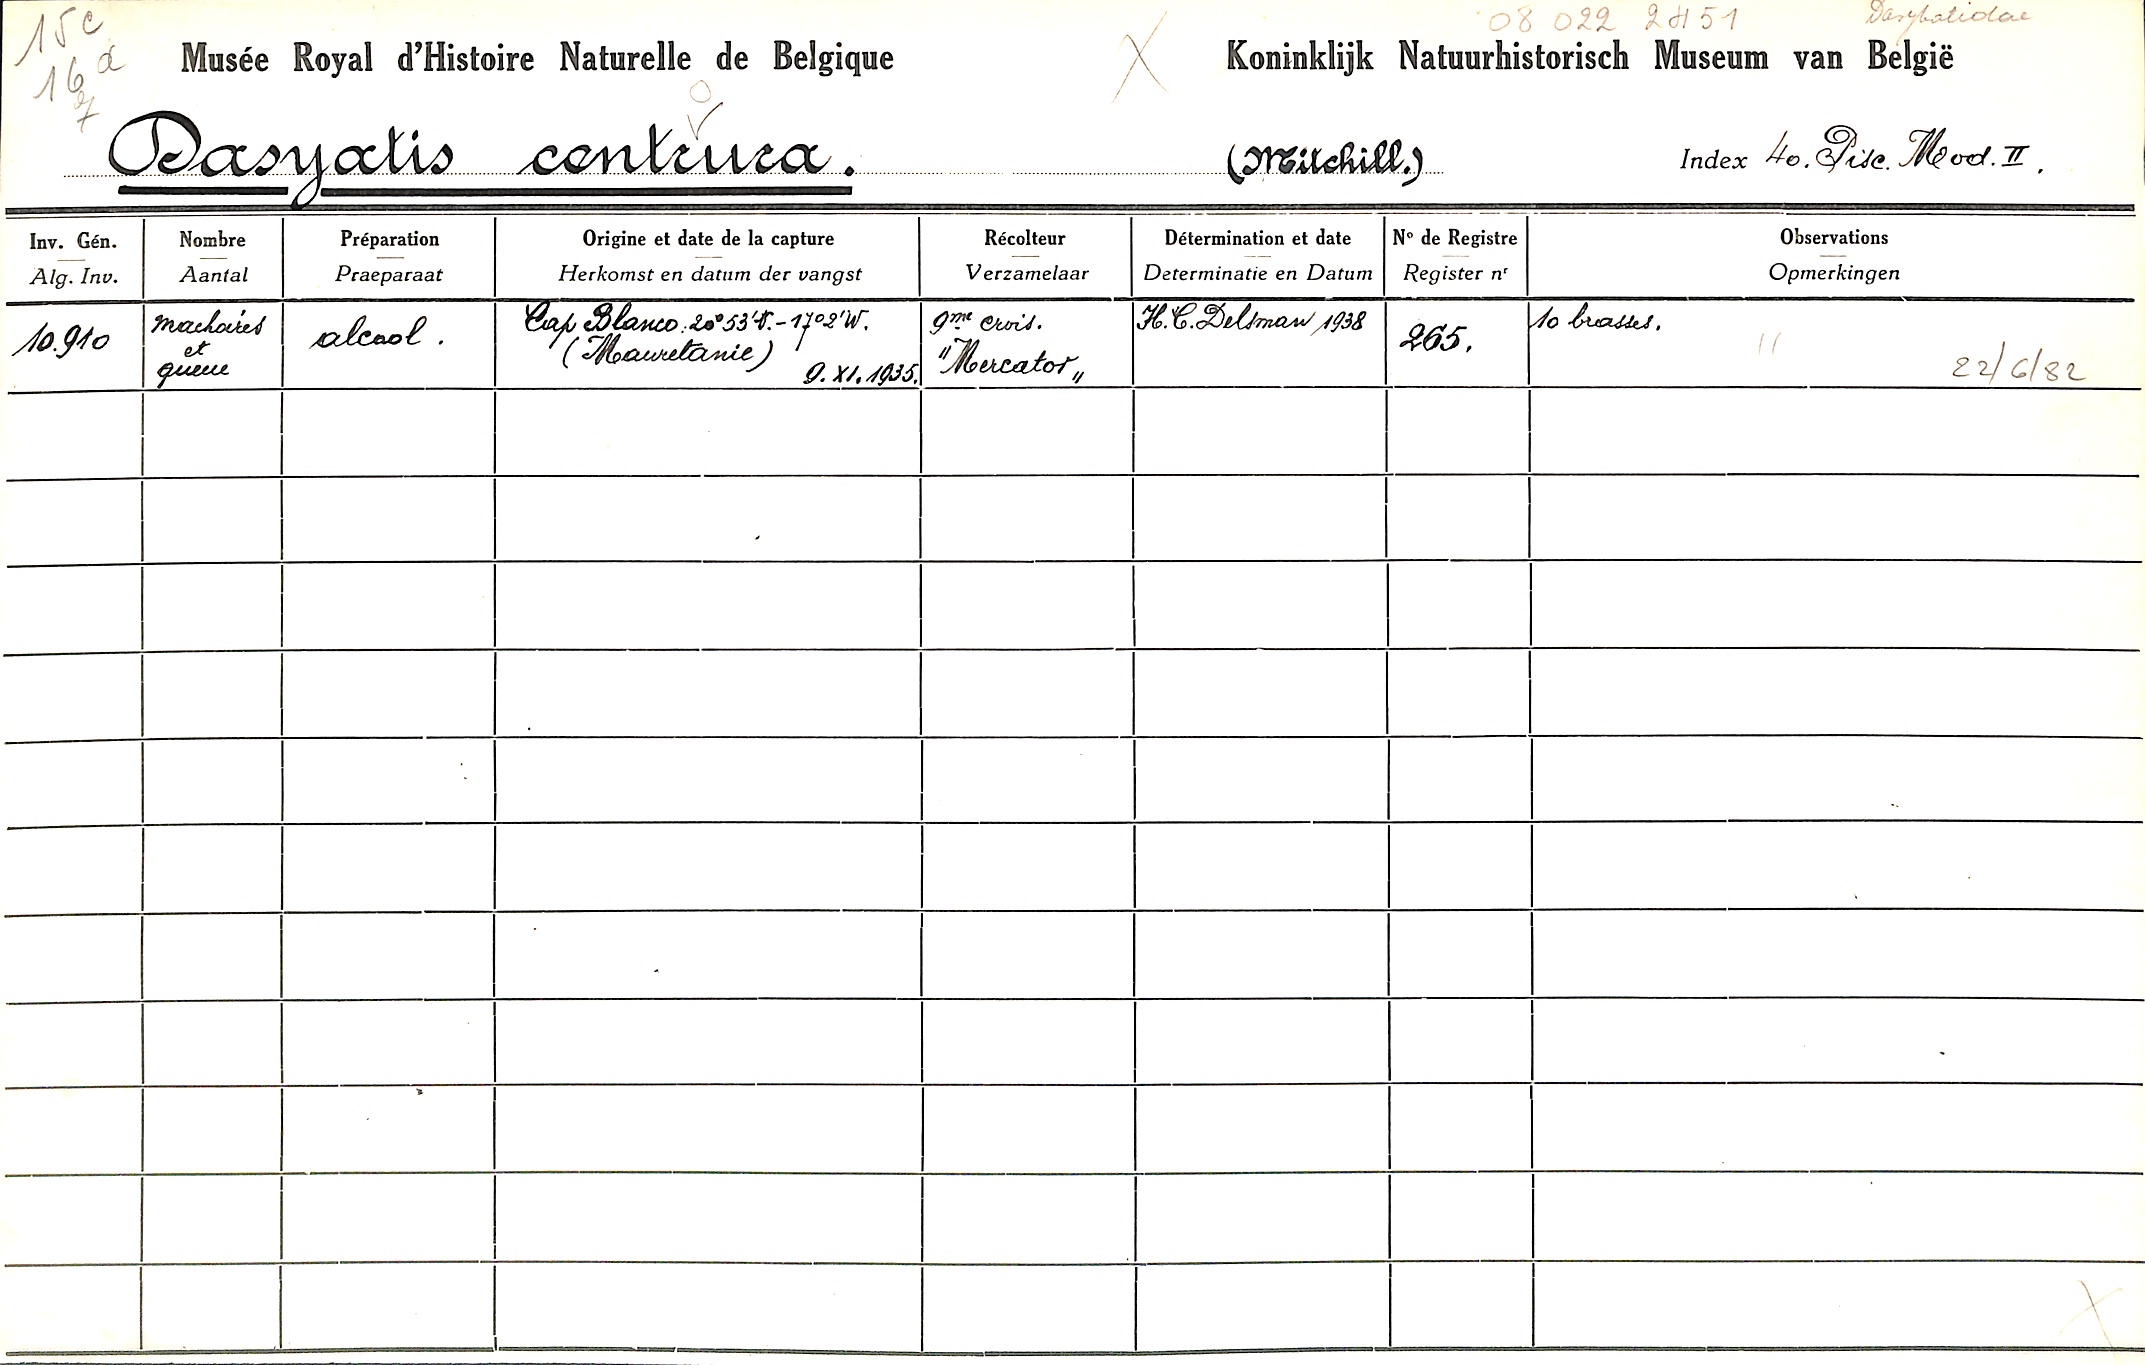 15c
16 d
08 022 2451
Dasybatidae
Musée Royal d'Histoire Naturelle de Belgique
Koninklijk Natuurhistorisch Museum van België
o
Dasyatis centrura.
(Mitchill.)
Index 40. Pisc. Mod. II.
Inv. Gén.
Alg. Inv.
Nombre
Aantal
Préparation
Praeparaat
Origine et date de la capture
Herkomst en datum der vangst
Récolteur
Verzamelaar
Détermination et date
Determinatie en Datum
Nº de Registre
Register nr
Observations
Opmerkingen
10.910
machoires
et
queue
alcool.
Cap Blanco. 20°53'N.-17°2'W.
(Mauretanie)
9.XI.1935.
9me crois.
"Mercator"
H.C. Delsman 1938
265.
10 brasses.
22/6/82